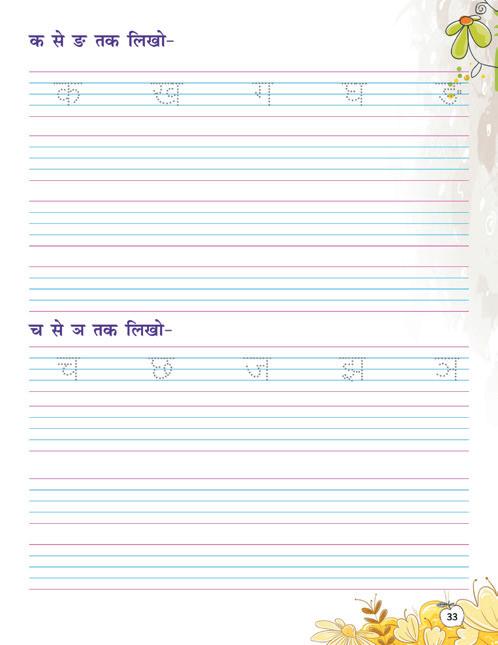 क से ङ तक लिखो-
क ख ग घ ङ
च से ञ तक लिखो-
च छ ज झ ञ
33